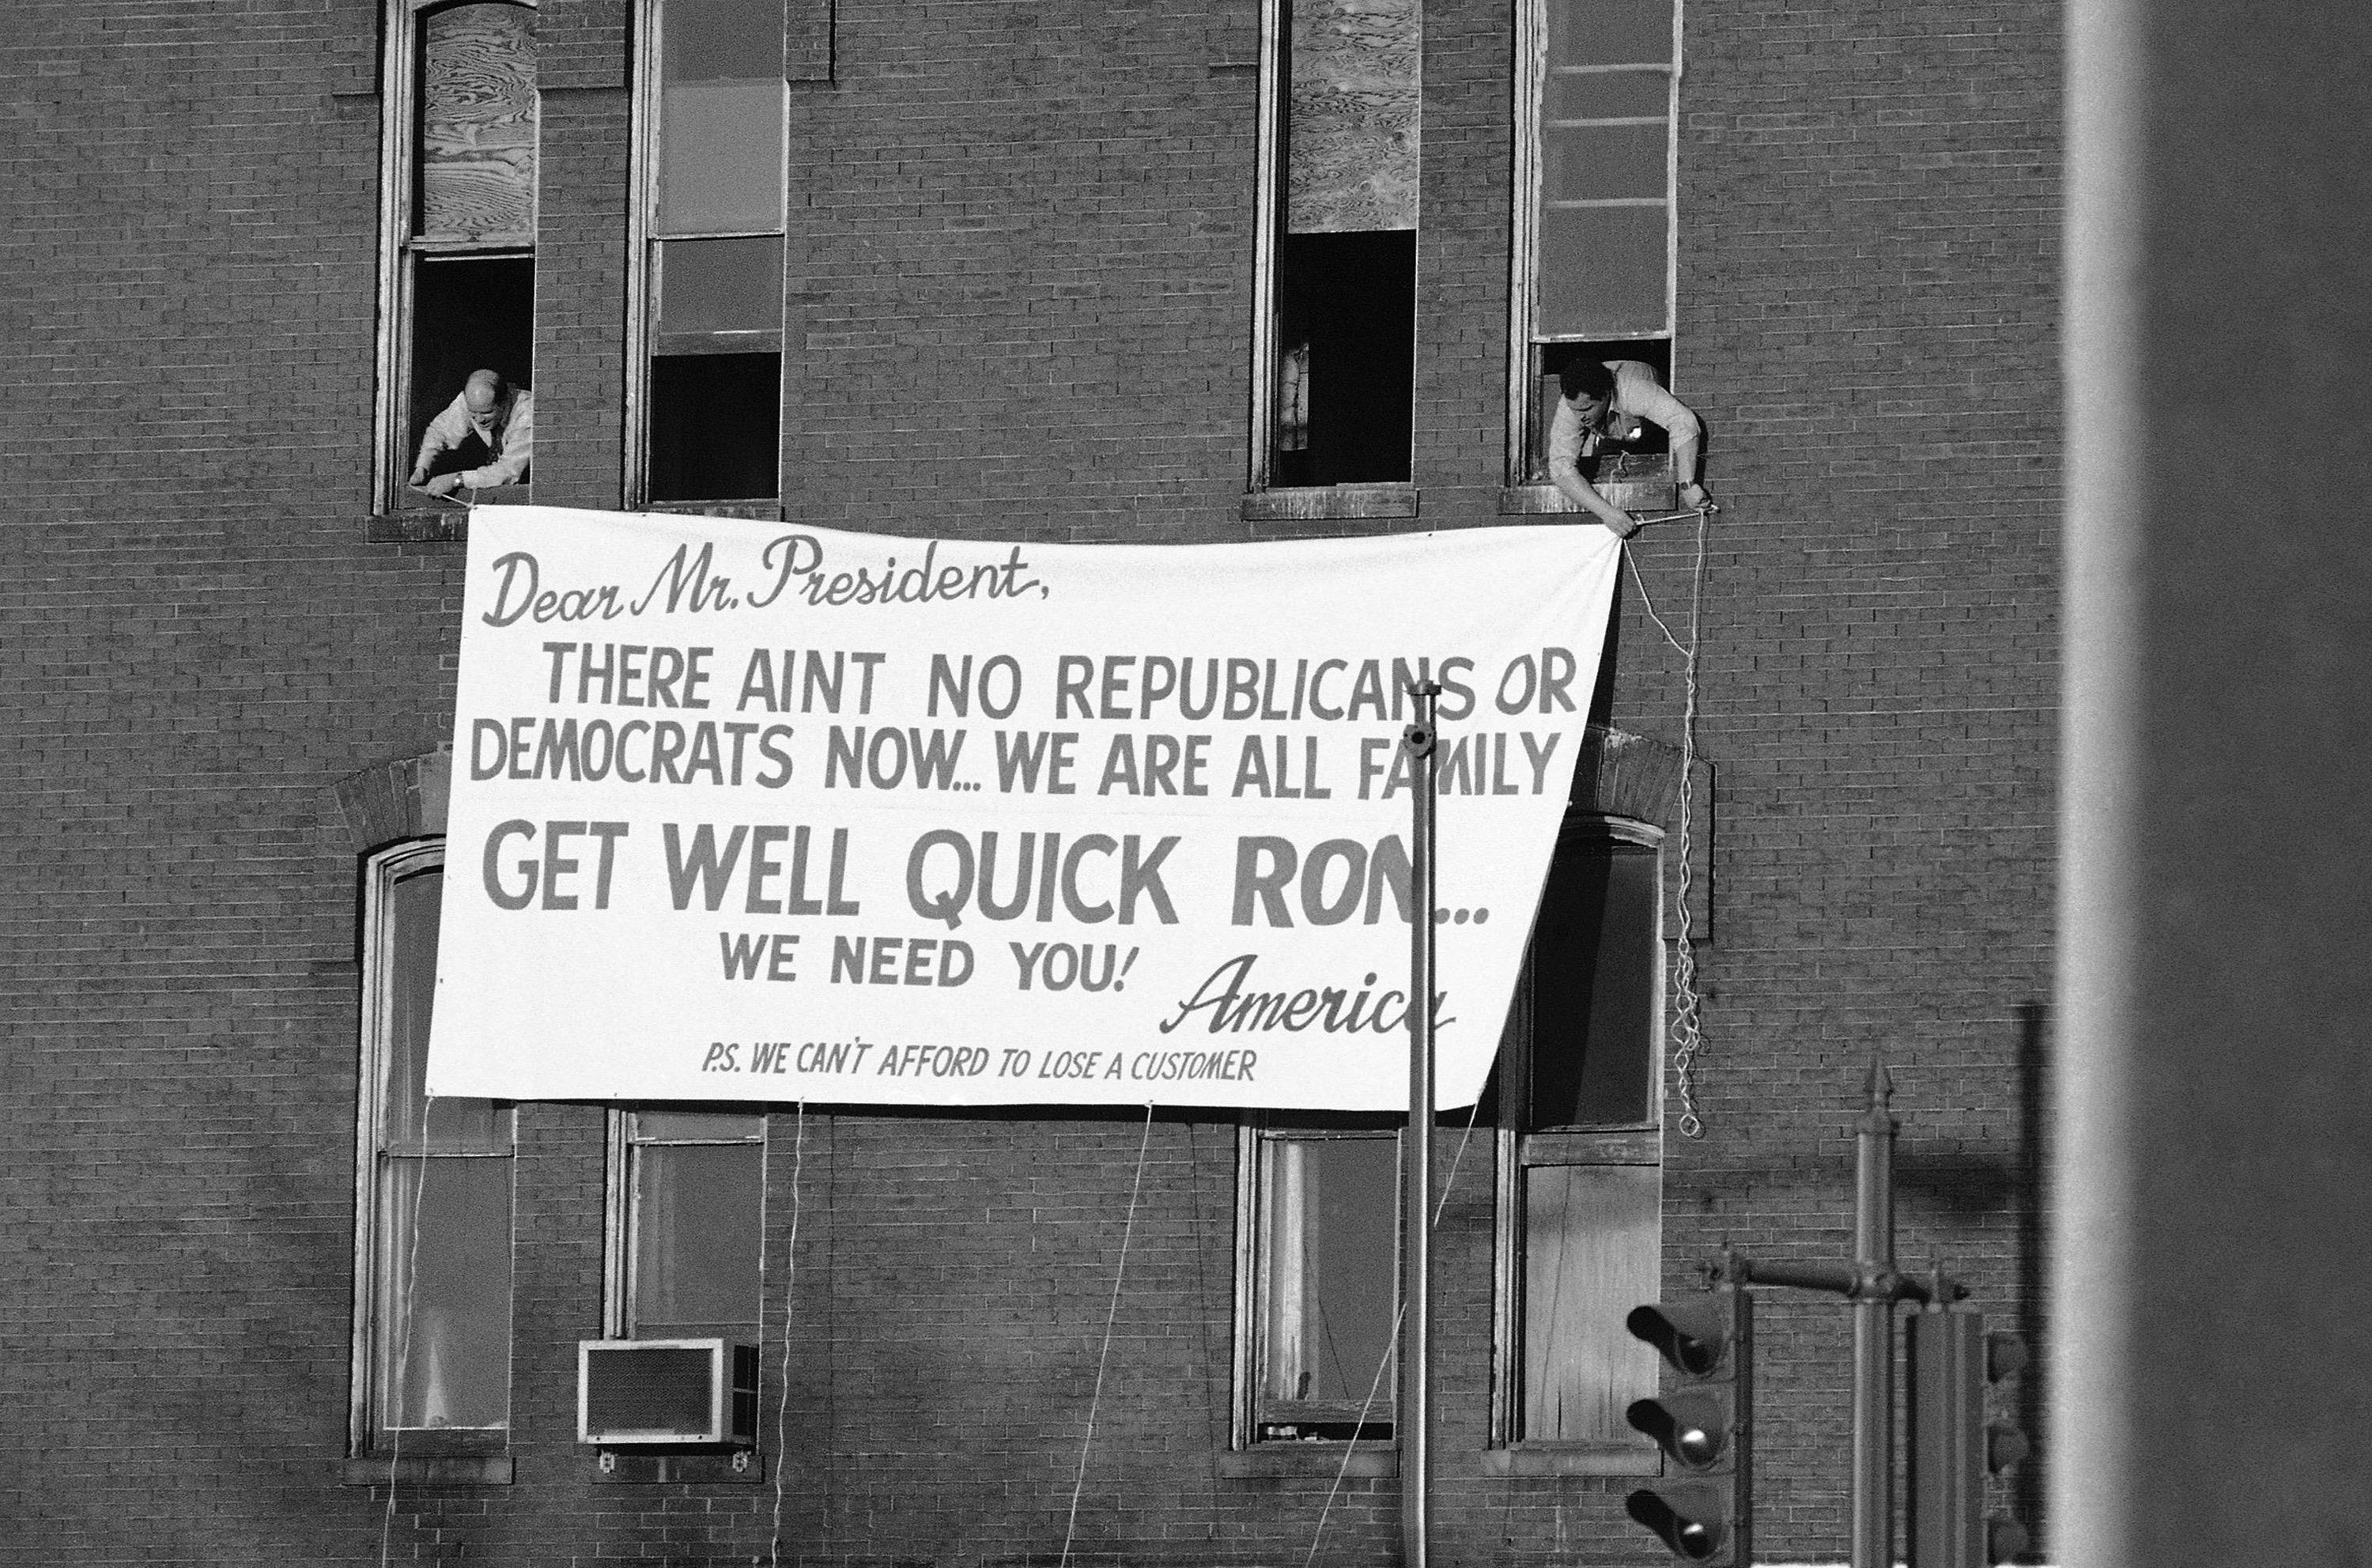 Dear Mr. President,
THERE AINT NO REPUBLICANS OR
DEMOCRATS NOW... WE ARE ALL FAMILY
GET WELL QUICK RON...
WE NEED YOU!
America
P.S. WE CAN'T AFFORD TO LOSE A CUSTOMER